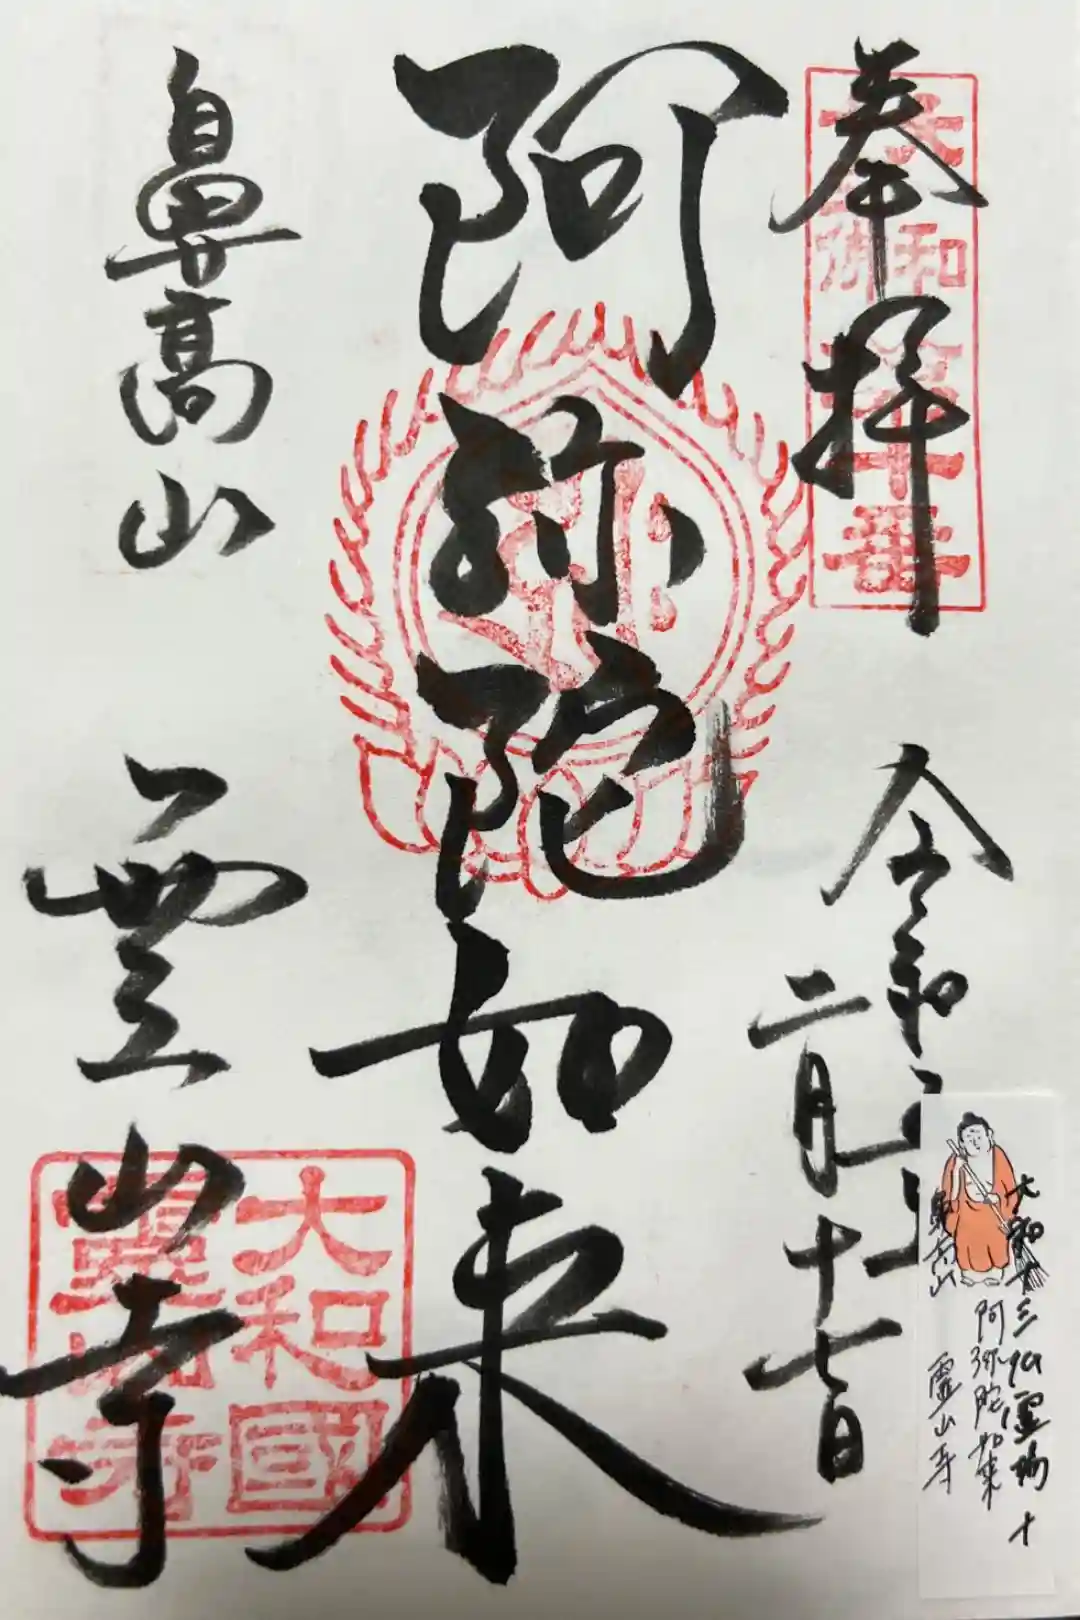 奉拝
令和
二月十七日
阿弥陀如来
鼻高山
霊山寺
大和
十三仏
第十番
大和國
霊山寺
大和十三仏霊場 十
阿弥陀如来
霊山寺